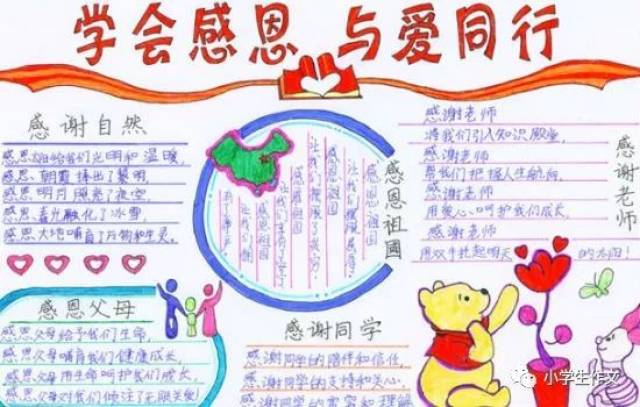 学会感恩 与爱同行
感谢自然
感恩
给我们光明和温暖,
感恩朝霞捧出了黎明,
感恩明月照亮了夜空,
感恩春光融化了冰雪,
感恩大地哺育了万物和生灵。
感恩父母
感恩父母给予我们生命,
感恩父母哺育我们健康成长,
感恩父母用生命呵护我们成长,
感恩父母对我们倾注了无限关爱!
感恩祖国
感恩祖国
感恩祖国
感恩祖国
感谢同学
感谢同学的陪伴和信任,
感谢同学的支持和关心,
感谢同学的宽容和理解
感谢老师
感谢老师
将我们引入知识殿堂,
感谢老师
帮我们把握人生航向,
感谢老师
用爱心呵护我们成长,
感谢老师
用双手托起明天
的太阳!
小学生作文